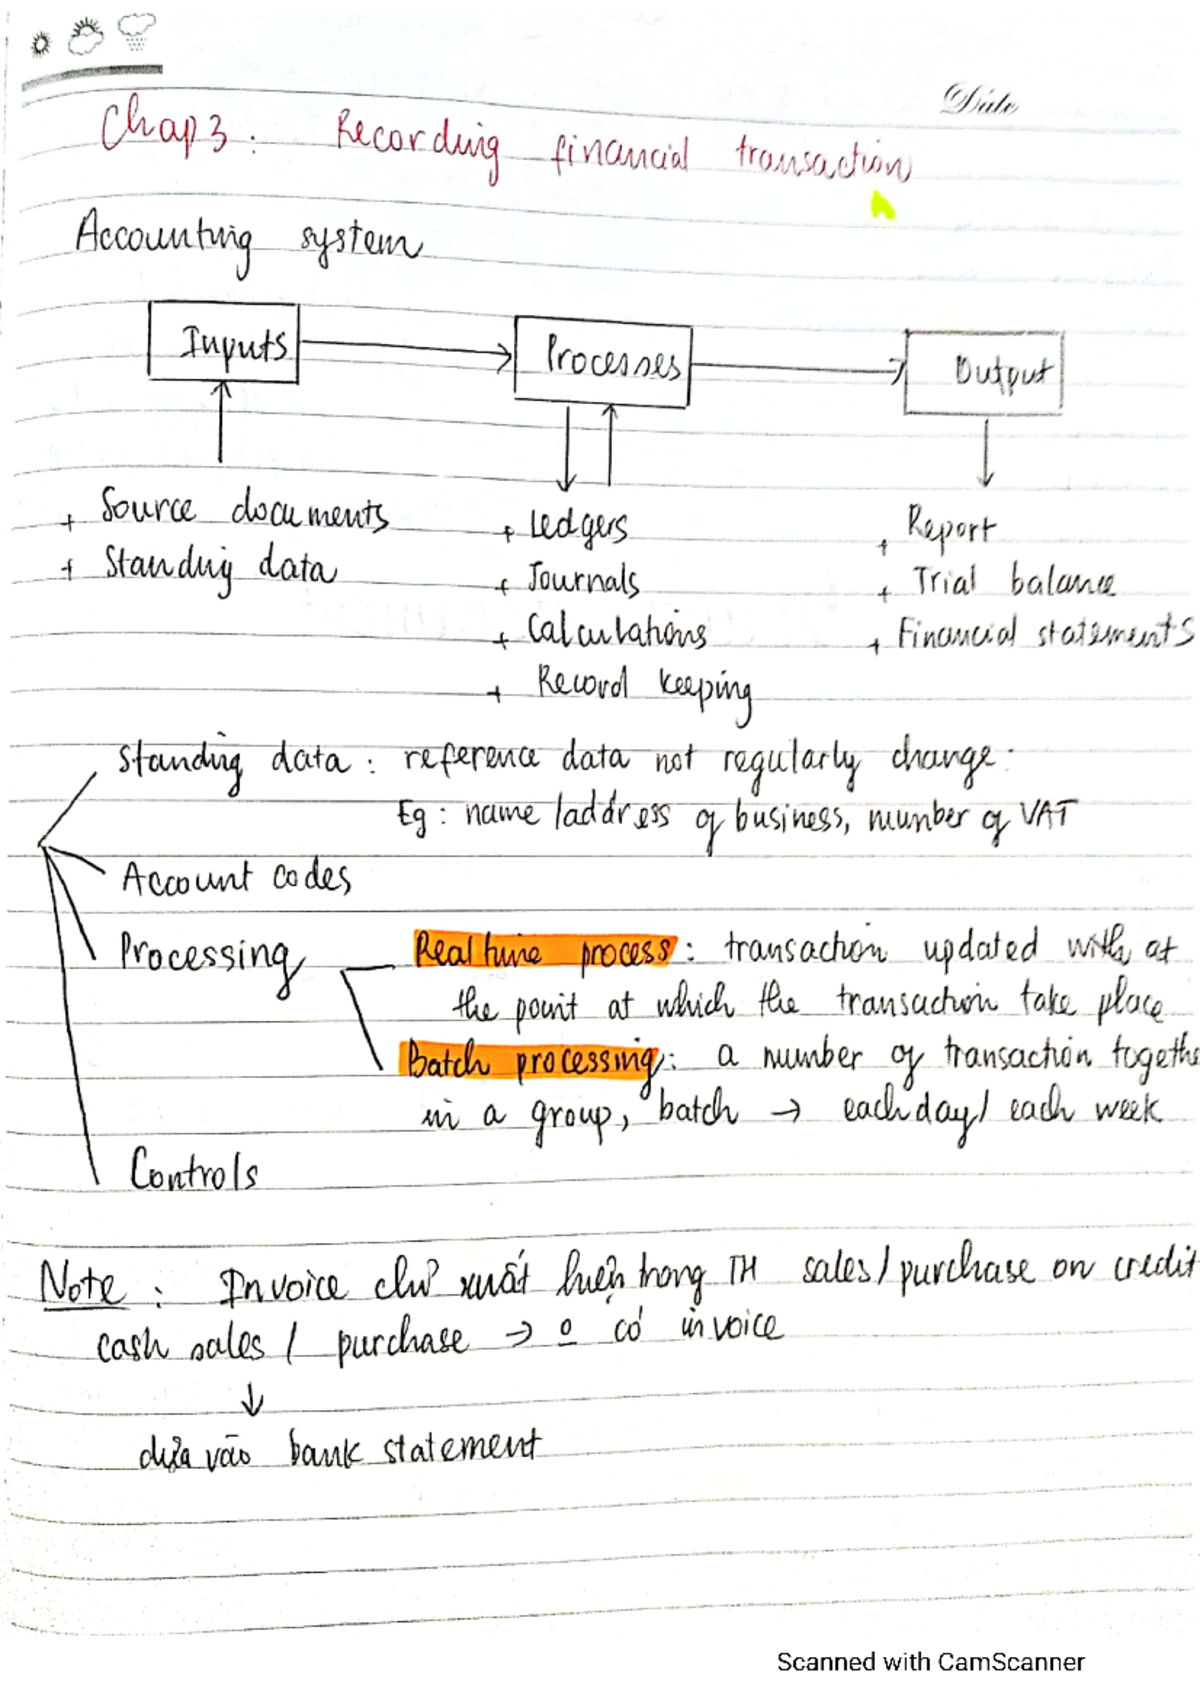 Date
Chap 3 : Recording financial transaction
Accounting system
Inputs Processes Output
+ Source documents + Ledgers + Report
+ Standing data + Journals + Trial balance
+ Calculations + Financial statements
+ Record keeping
Standing data : reference data not regularly change.
Eg : name / address of business, number of VAT
Account codes
Processing Real time process : transaction updated with at
the point at which the transaction take place
Batch processing : a number of transaction togethe
in a group, batch → each day / each week
Controls
Note : Invoice chỉ xuất hiện trong TH sales / purchase on credit
cash sales / purchase → o có invoice
↓
dựa vào bank statement
Scanned with CamScanner